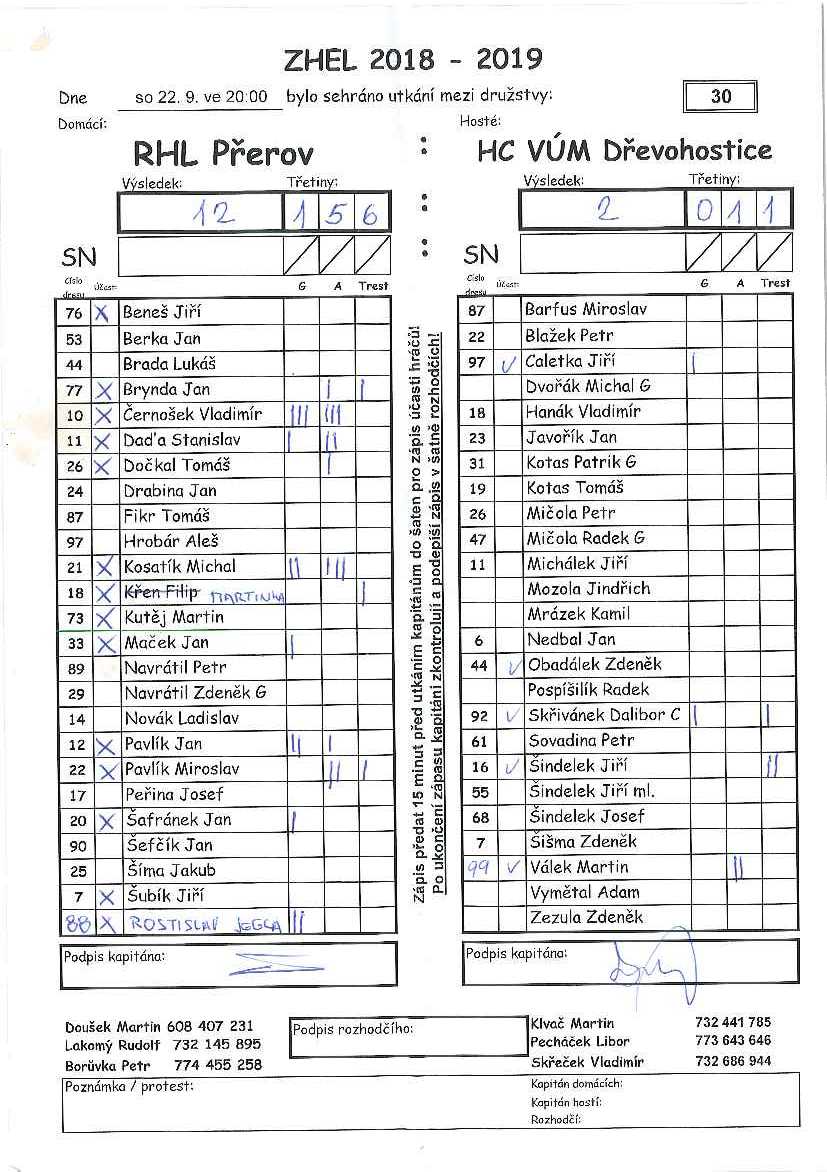 ZHEL 2018 - 2019
Dne so 22. 9. ve 20:00 bylo sehráno utkání mezi družstvy: 30
Domácí: Hosté:
RHL Přerov : HC VÚM Dřevohostice
Výsledek: Třetiny: Výsledek: Třetiny:
12 1 5 6 : 2 0 1 1
SN : SN
Číslo dresu Účast G A Trest Číslo dresu Účast G A Trest
76 X Beneš Jiří
53 Berka Jan
44 Brada Lukáš
77 X Brynda Jan | |
10 X Černošek Vladimír ||| |||
11 X Daďa Stanislav | ||
26 X Dočkal Tomáš |
24 Drabina Jan
87 Fikr Tomáš
97 Hrobár Aleš
21 X Kosatík Michal || |||
18 X Křen Filip MARTINKA |
73 X Kutěj Martin
33 X Maček Jan |
89 Navrátil Petr
29 Navrátil Zdeněk G
14 Novák Ladislav
12 X Pavlík Jan || |
22 X Pavlík Miroslav || |
17 Peřina Josef
20 X Šafránek Jan |
90 Šefčík Jan
25 Šíma Jakub
7 X Šubík Jiří
88 X ROSTISLAV JEGLA ||
Zápis předat 15 minut před utkáním kapitánům do šaten pro zápis účasti hráčů!
Po ukončení zápasu kapitáni zkontrolují a podepíší zápis v šatně rozhodčích!
87 Barfus Miroslav
22 Blažek Petr
97 ✓ Caletka Jiří |
Dvořák Michal G
18 Hanák Vladimír
23 Javořík Jan
31 Kotas Patrik G
19 Kotas Tomáš
26 Mičola Petr
47 Mičola Radek G
11 Michálek Jiří
Mozola Jindřich
Mrázek Kamil
6 Nedbal Jan
44 ✓ Obadálek Zdeněk
Pospíšilík Radek
92 ✓ Skřivánek Dalibor C | |
61 Sovadina Petr
16 ✓ Šindelek Jiří ||
55 Šindelek Jiří ml.
68 Šindelek Josef
7 Šišma Zdeněk
99 ✓ Válek Martin ||
Vymětal Adam
Zezula Zdeněk
Podpis kapitána: Podpis kapitána:
Doušek Martin 608 407 231
Lakomý Rudolf 732 145 895
Borůvka Petr 774 455 258
Podpis rozhodčího:
Klvač Martin 732 441 785
Pecháček Libor 773 643 646
Skřeček Vladimír 732 686 944
Poznámka / protest:
Kapitán domácích:
Kapitán hostí:
Rozhodčí: